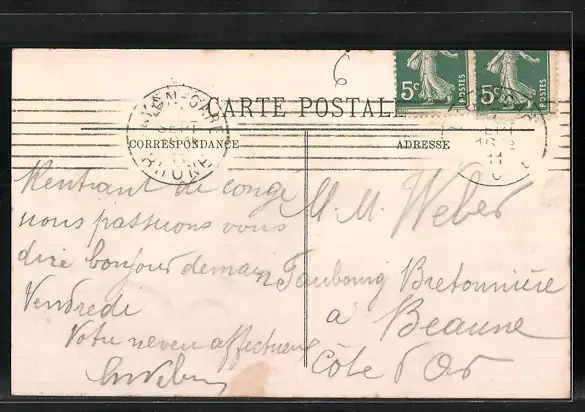 6
5c POSTES
5c POSTES
LYON-GARE
SEPT
11
RHONE
CARTE POSTALE
CORRESPONDANCE
ADRESSE
Rentrant de congé
nous passerons vous
dire bonjour demain
Vendredi
Votre neveu affectueux
M. M. Weber
Faubourg Bretonnière
à Beaune
Côte d'Or